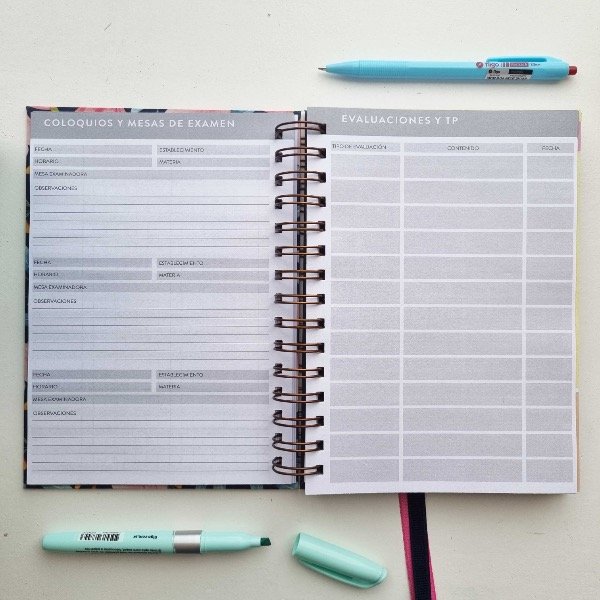 COLOQUIOS Y MESAS DE EXAMEN
FECHA ESTABLECIMIENTO
HORARIO MATERIA
MESA EXAMINADORA
OBSERVACIONES
FECHA ESTABLECIMIENTO
HORARIO MATERIA
MESA EXAMINADORA
OBSERVACIONES
FECHA ESTABLECIMIENTO
HORARIO MATERIA
MESA EXAMINADORA
OBSERVACIONES
EVALUACIONES Y TP
TIPO DE EVALUACIÓN CONTENIDO FECHA